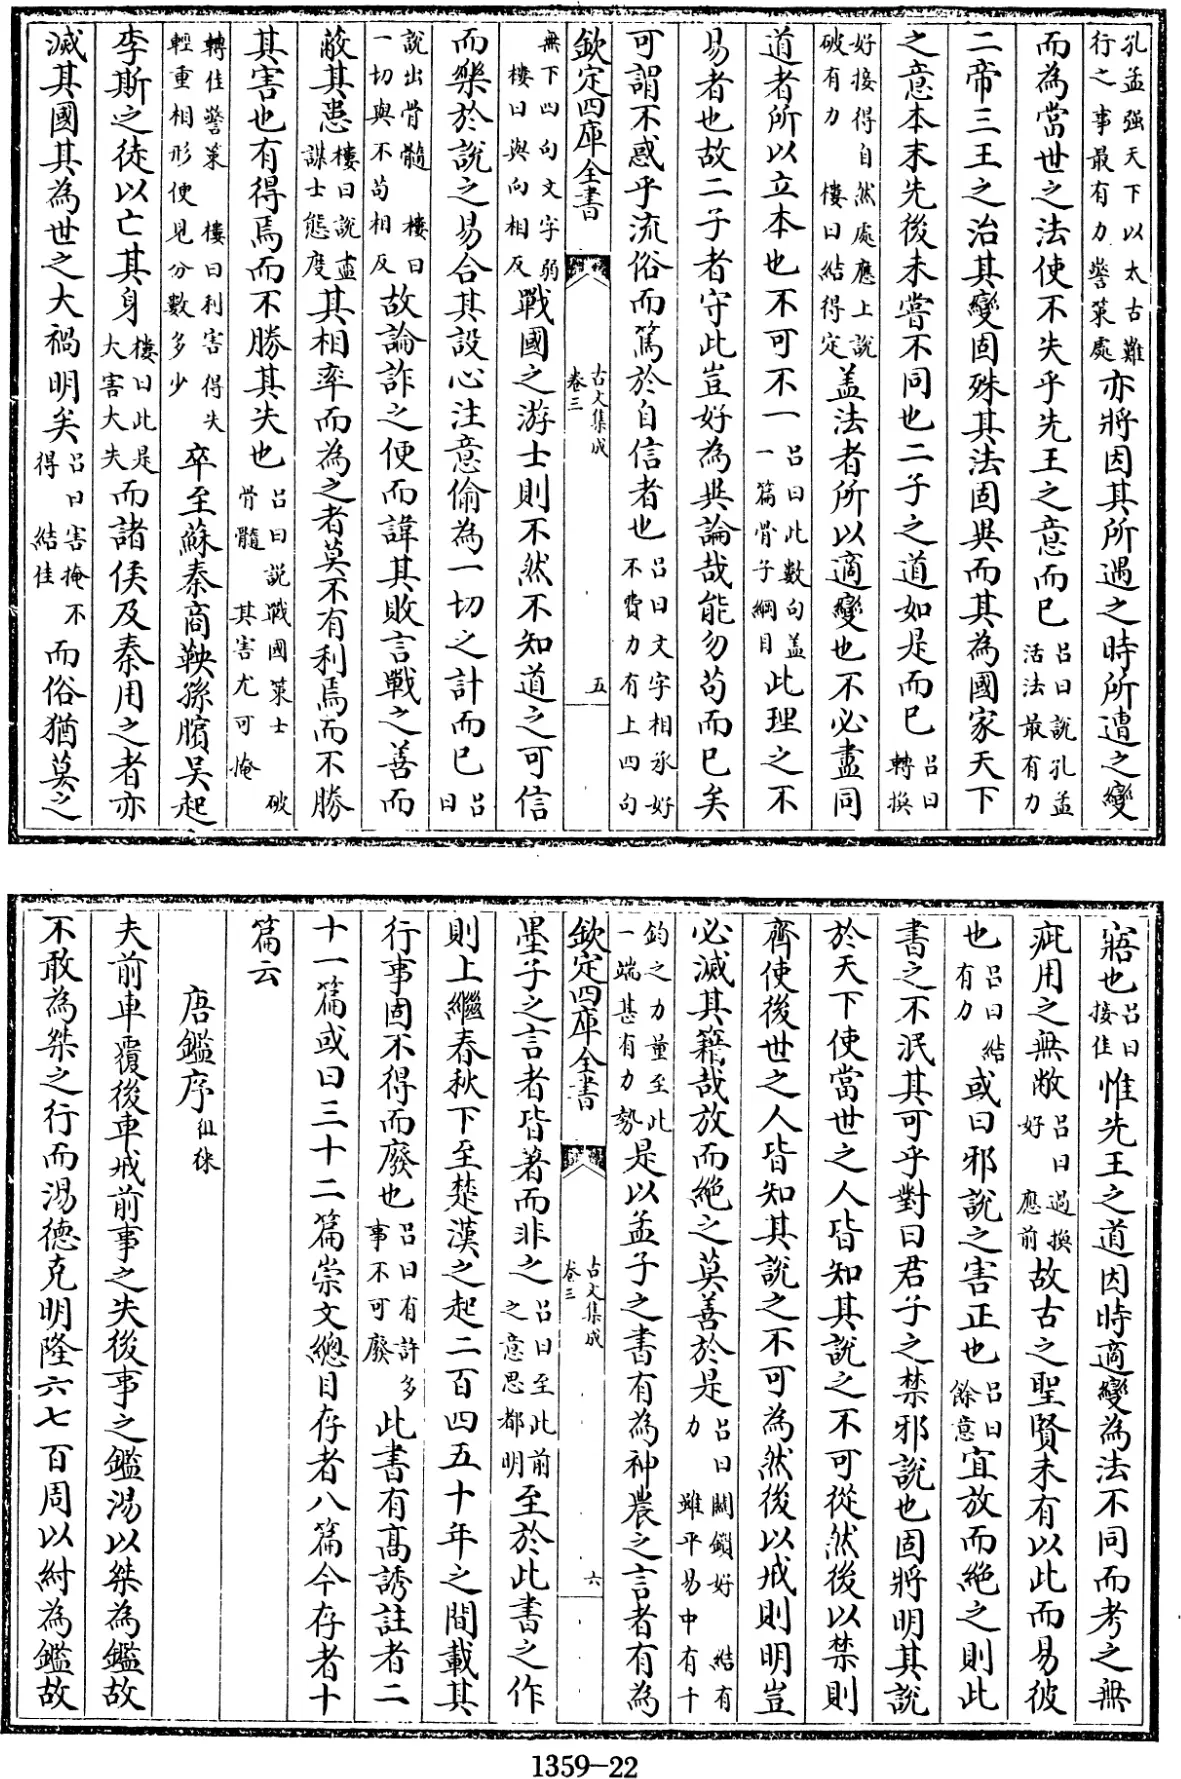 孔孟强天下以太古難行之事最有力警策處亦將因其所遇之時所遭之變
而為當世之法使不失乎先王之意而已吕曰說孔孟活法最有力
二帝三王之治其變固殊其法固異而其為國家天下
之意本末先後未嘗不同也二子之道如是而已吕曰轉換
好接得自然處應上說破有力 樓曰結得定盖法者所以適變也不必盡同
道者所以立本也不可不一吕曰此數句盖一篇骨子綱目此理之不
易者也故二子者守此豈好為異論哉能勿苟而已矣
可謂不惑乎流俗而篤於自信者也吕曰文字相承好不費力有上四句
欽定四庫全書 古文集成 卷三 五
無下四句文字弱 樓曰與向相反戰國之游士則不然不知道之可信
而樂於說之易合其設心注意偷為一切之計而已吕曰
說出骨髓 樓曰一切與不苟相反故論詐之便而諱其敗言戰之善而
蔽其患樓曰說盡謀士態度其相率而為之者莫不有利焉而不勝
其害也有得焉而不勝其失也吕曰說戰國策士骨髓 其害尤可掩 破
轉佳警策 樓曰利害得失輕重相形便見分數多少卒至蘇秦商鞅孫臏吳起
李斯之徒以亡其身樓曰此是大害大失而諸侯及秦用之者亦
滅其國其為世之大禍明矣吕曰害掩不得 結佳而俗猶莫之
寤也吕曰接佳惟先王之道因時適變為法不同而考之無
疵用之無敝吕曰過換好 應前故古之聖賢未有以此而易彼
也吕曰結有力或曰邪說之害正也吕曰餘意宜放而絶之則此
書之不泯其可乎對曰君子之禁邪說也固將明其說
於天下使當世之人皆知其說之不可從然後以禁則
齊使後世之人皆知其說之不可為然後以戒則明豈
必滅其籍哉放而絶之莫善於是吕曰關鎖好 結有力 雖平易中有千
鈞之力量至此一端甚有力勢是以孟子之書有為神農之言者有為
欽定四庫全書 古文集成 卷三 六
墨子之言者皆著而非之吕曰至此前之意思都明至於此書之作
則上繼春秋下至楚漢之起二百四五十年之間載其
行事固不得而廢也吕曰有許多事不可廢此書有高誘註者二
十一篇或曰三十二篇崇文總目存者八篇今存者十
篇云
唐鑑序徂徠
夫前車覆後車戒前事之失後事之鑑湯以桀為鑑故
不敢為桀之行而湯德克明隆六七百周以紂為鑑故
1359-22